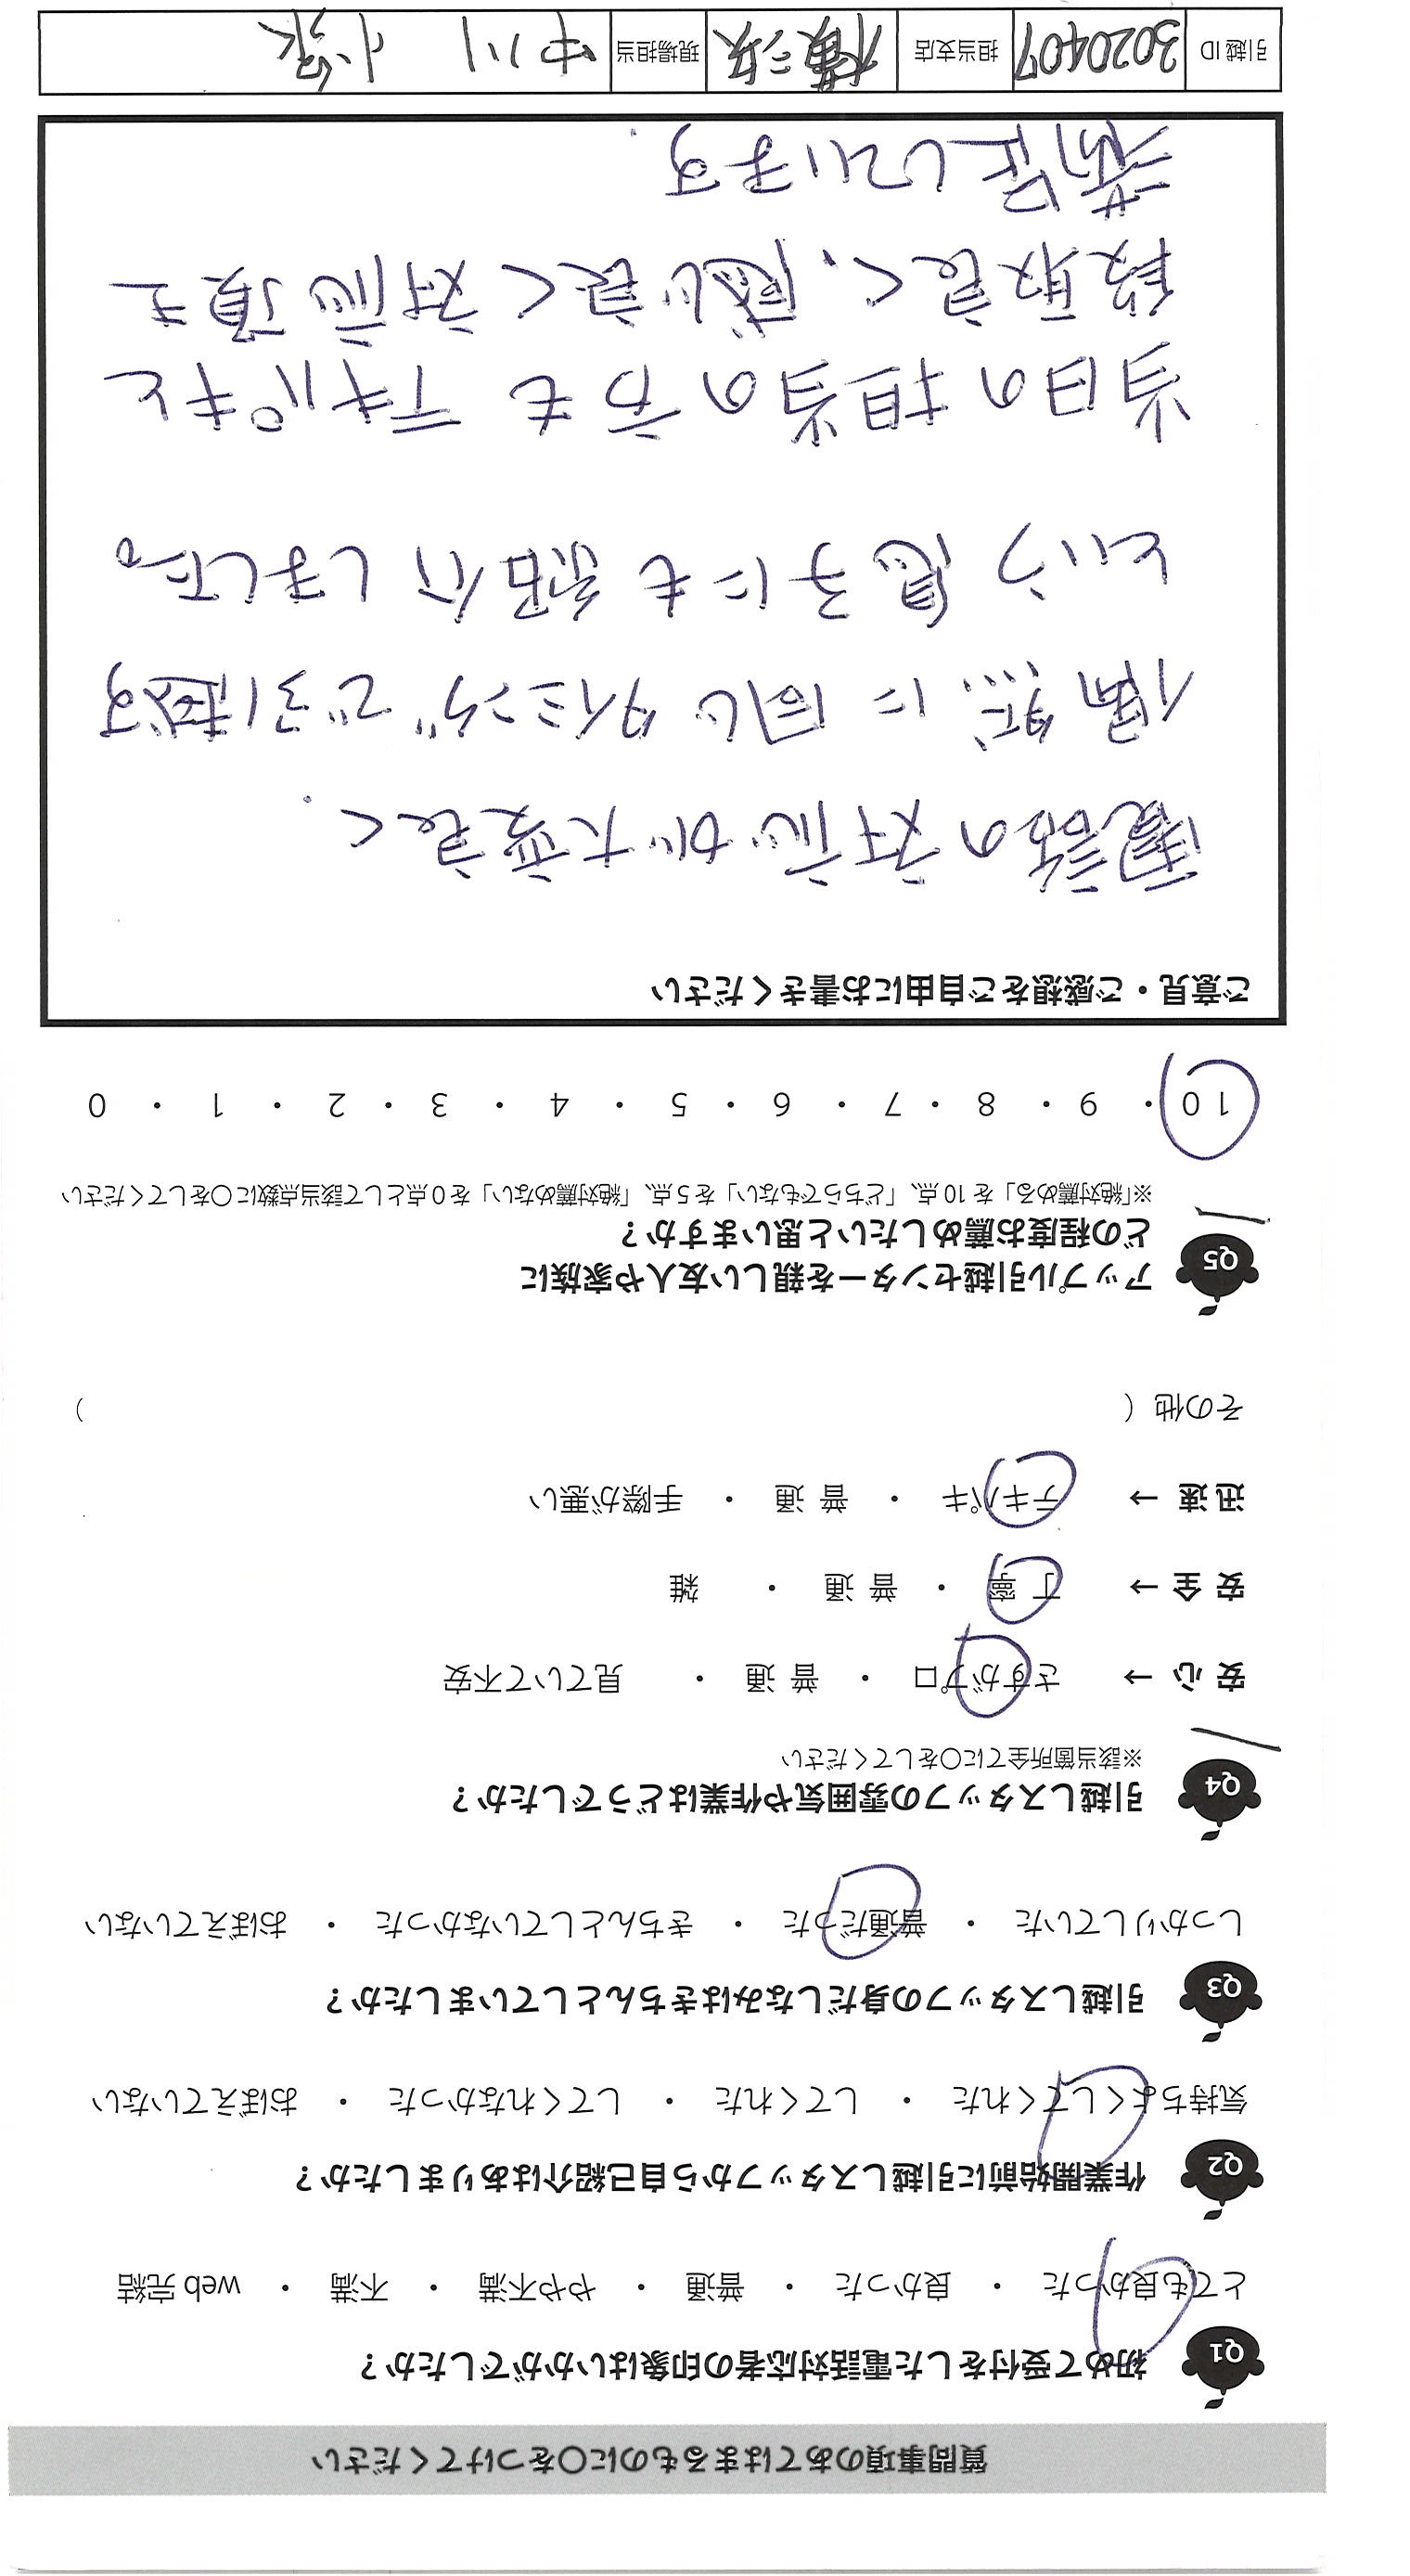 質問事項のあてはまるものに○をつけてください
Q1 初めて受付をした電話対応者の印象はいかがでしたか？
とても良かった ・ 良かった ・ 普通 ・ やや不満 ・ 不満 ・ web 完結
Q2 作業開始前に引越しスタッフから自己紹介はありましたか？
気持ちよくしてくれた ・ してくれた ・ してくれなかった ・ おぼえていない
Q3 引越しスタッフの身だしなみはきちんとしていましたか？
しっかりしていた ・ 普通だった ・ きちんとしていなかった ・ おぼえていない
Q4 引越しスタッフの雰囲気や作業はどうでしたか？
※該当箇所全てに○をしてください
安 心 → さすがプロ ・ 普 通 ・ 見ていて不安
安 全 → 丁 寧 ・ 普 通 ・ 雑
迅 速 → テキパキ ・ 普 通 ・ 手際が悪い
その他（ ）
Q5 アップル引越センターを親しい友人や家族に
どの程度お薦めしたいと思いますか？
※「絶対薦める」を 10 点、「どちらでもない」を 5 点、「絶対薦めない」を 0 点として該当点数に○をしてください
10 ・ 9 ・ 8 ・ 7 ・ 6 ・ 5 ・ 4 ・ 3 ・ 2 ・ 1 ・ 0
ご意見・ご感想をご自由にお書きください
電話の対応が大変良く、
偶然に同じタイミングで引越す
という息子にも紹介しました。
当日の担当の方もテキパキと
段取良く、感じ良く対応頂き
満足しています.
引越 ID 3020407 担当支店 横浜 現場担当 中川 小泉